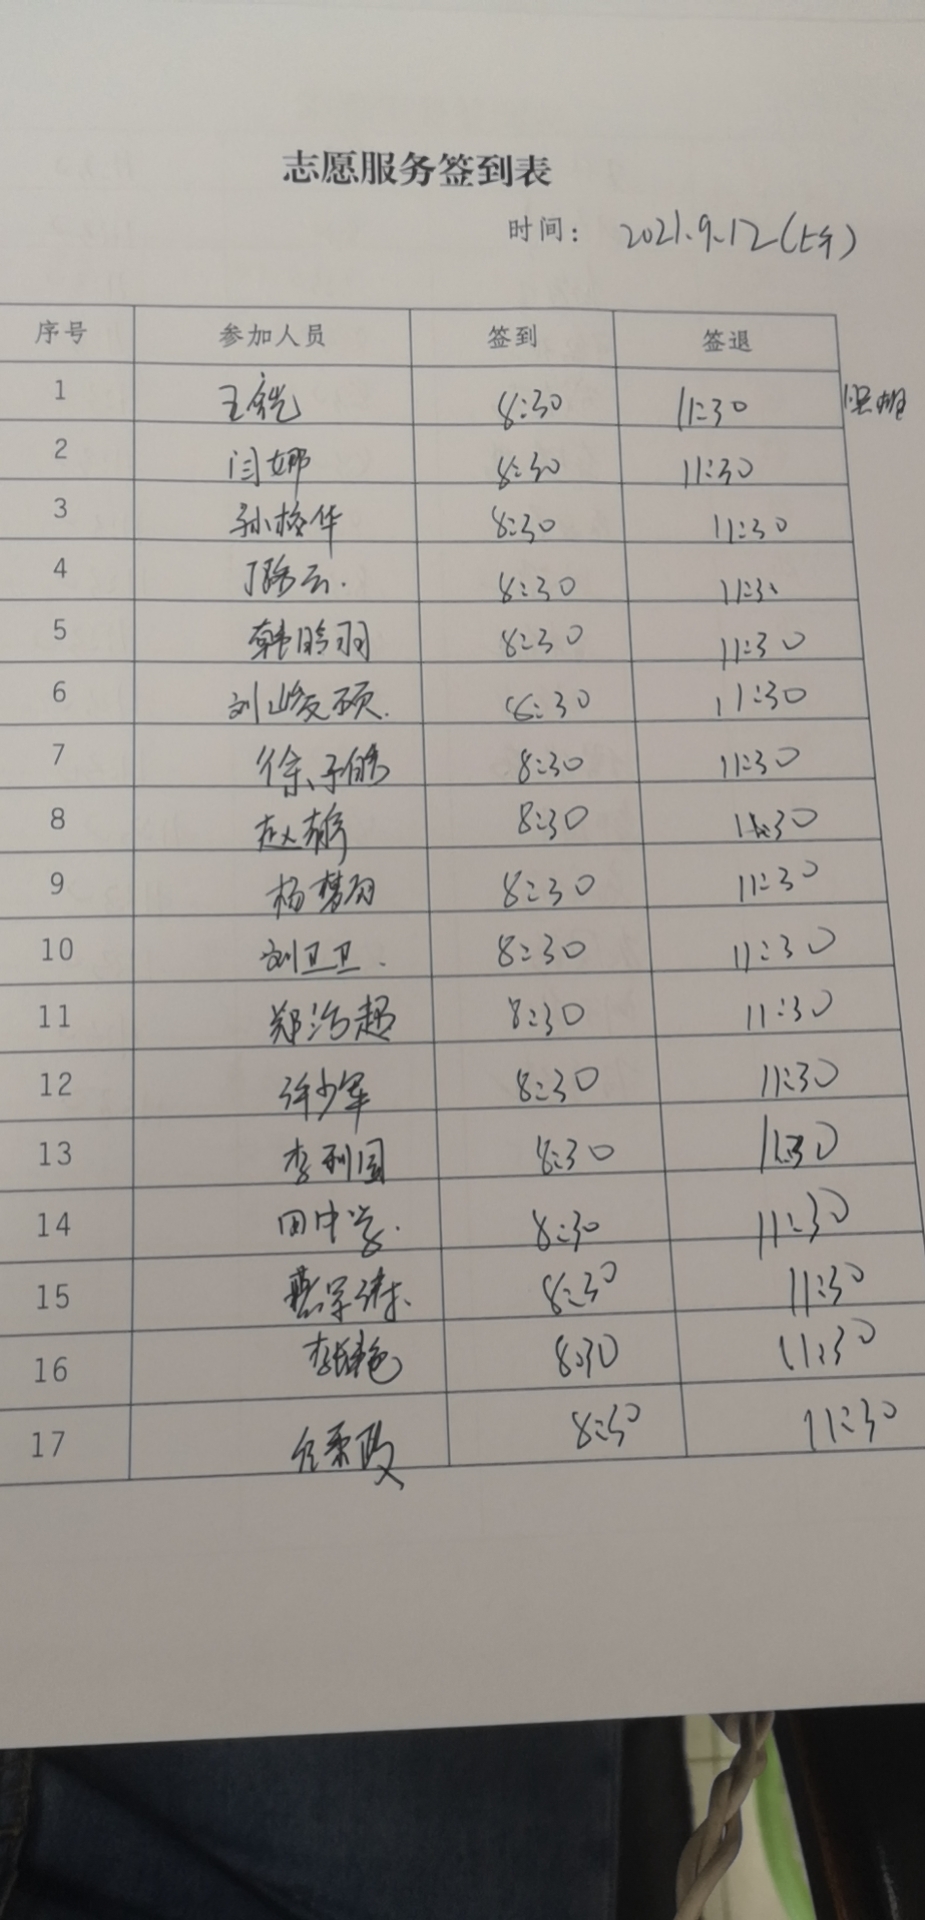 志愿服务签到表
时间: 2021.9.12(上午)
序号 参加人员 签到 签退
1 王 8:30 11:30
2 闫娜 8:30 11:30
3 孙 华 8:30 11:30
4 丁 云. 8:30 11:30
5 韩晗羽 8:30 11:30
6 刘峻硕. 8:30 11:30
7 徐子皓 8:30 11:30
8 赵 8:30 11:30
9 杨梦 8:30 11:30
10 刘卫卫. 8:30 11:30
11 郑浩超 8:30 11:30
12 许少军 8:30 11:30
13 李利国 8:30 11:30
14 田中学. 8:30 11:30
15 8:30 11:30
16 李 艳 8:30 11:30
17 任 政 8:30 11:30